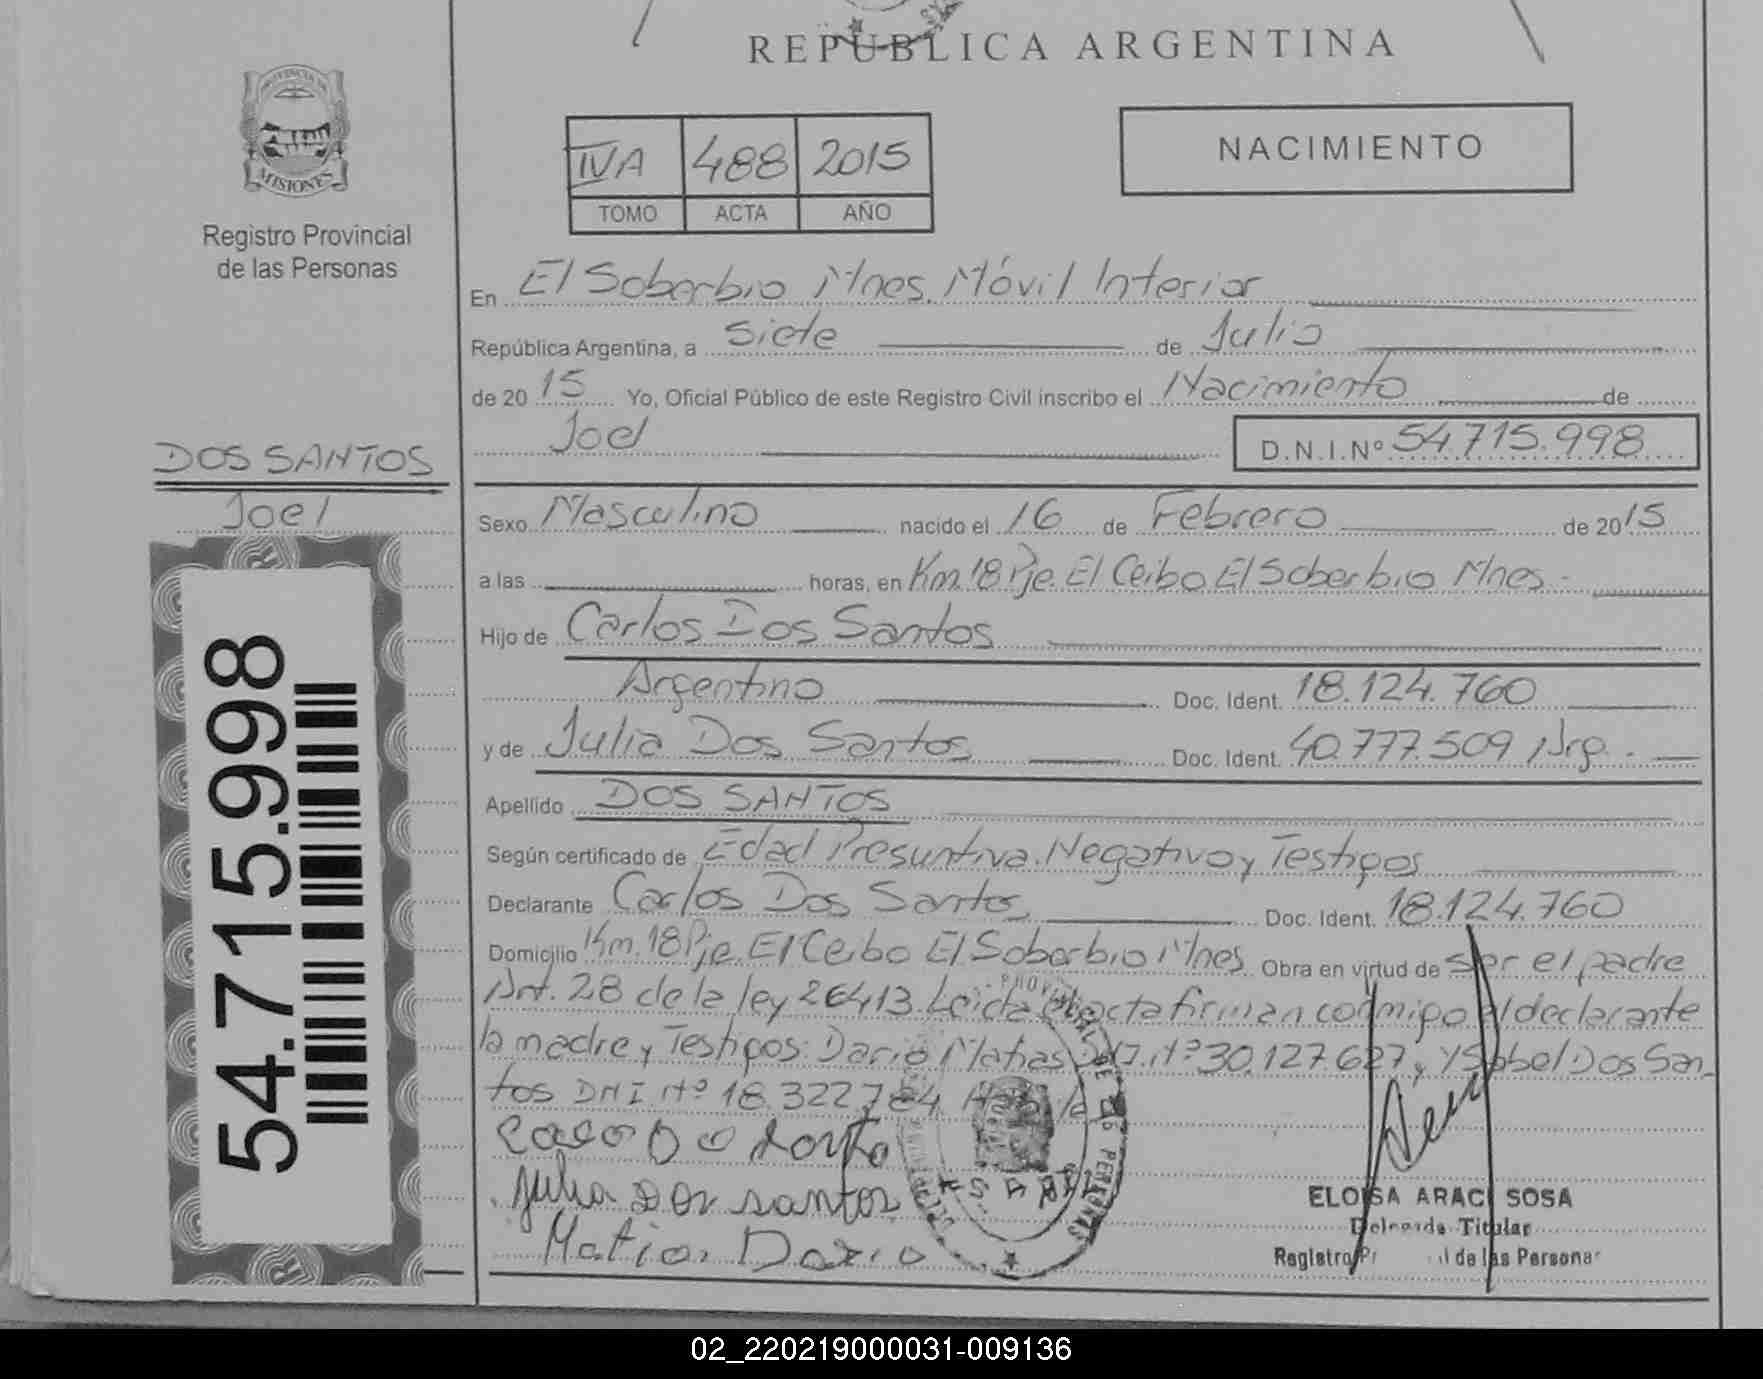 REPUBLICA ARGENTINA
PROVINCIA DE
MISIONES
Registro Provincial
de las Personas
IVA 488 2015
TOMO ACTA AÑO
NACIMIENTO
En El Soberbio Mnes. Móvil Interior
República Argentina, a siete de Julio
de 2015 Yo, Oficial Público de este Registro Civil inscribo el Nacimiento de
Joel D.N.I.Nº 54.715.998
DOS SANTOS
Joel
54.715.998
Sexo Masculino nacido el 16 de Febrero de 2015
a las horas, en Km.18 Pje. El Ceibo El Soberbio Mnes.-
Hijo de Carlos Dos Santos
Argentino Doc. Ident. 18.124.760
y de Julia Dos Santos Doc. Ident. 40.777.509 Arg.-
Apellido DOS SANTOS
Según certificado de Edad Presuntiva. Negativo y Testigos
Declarante Carlos Dos Santos Doc. Ident. 18.124.760
Domicilio Km.18 Pje. El Ceibo El Soberbio Mnes. Obra en virtud de ser el padre
Art. 28 de la ley 26413. Leida el acta firman conmigo el declarante
la madre y Testigos: Dario Matias D.N.I.Nº 30.127.627 y Ysabel Dos San_
tos DNI Nº 18.322.784
Julia Dos santos
Matias Dario
ELOISA ARACI SOSA
Delegada Titular
Registro Pr l de las Personas
02_220219000031-009136